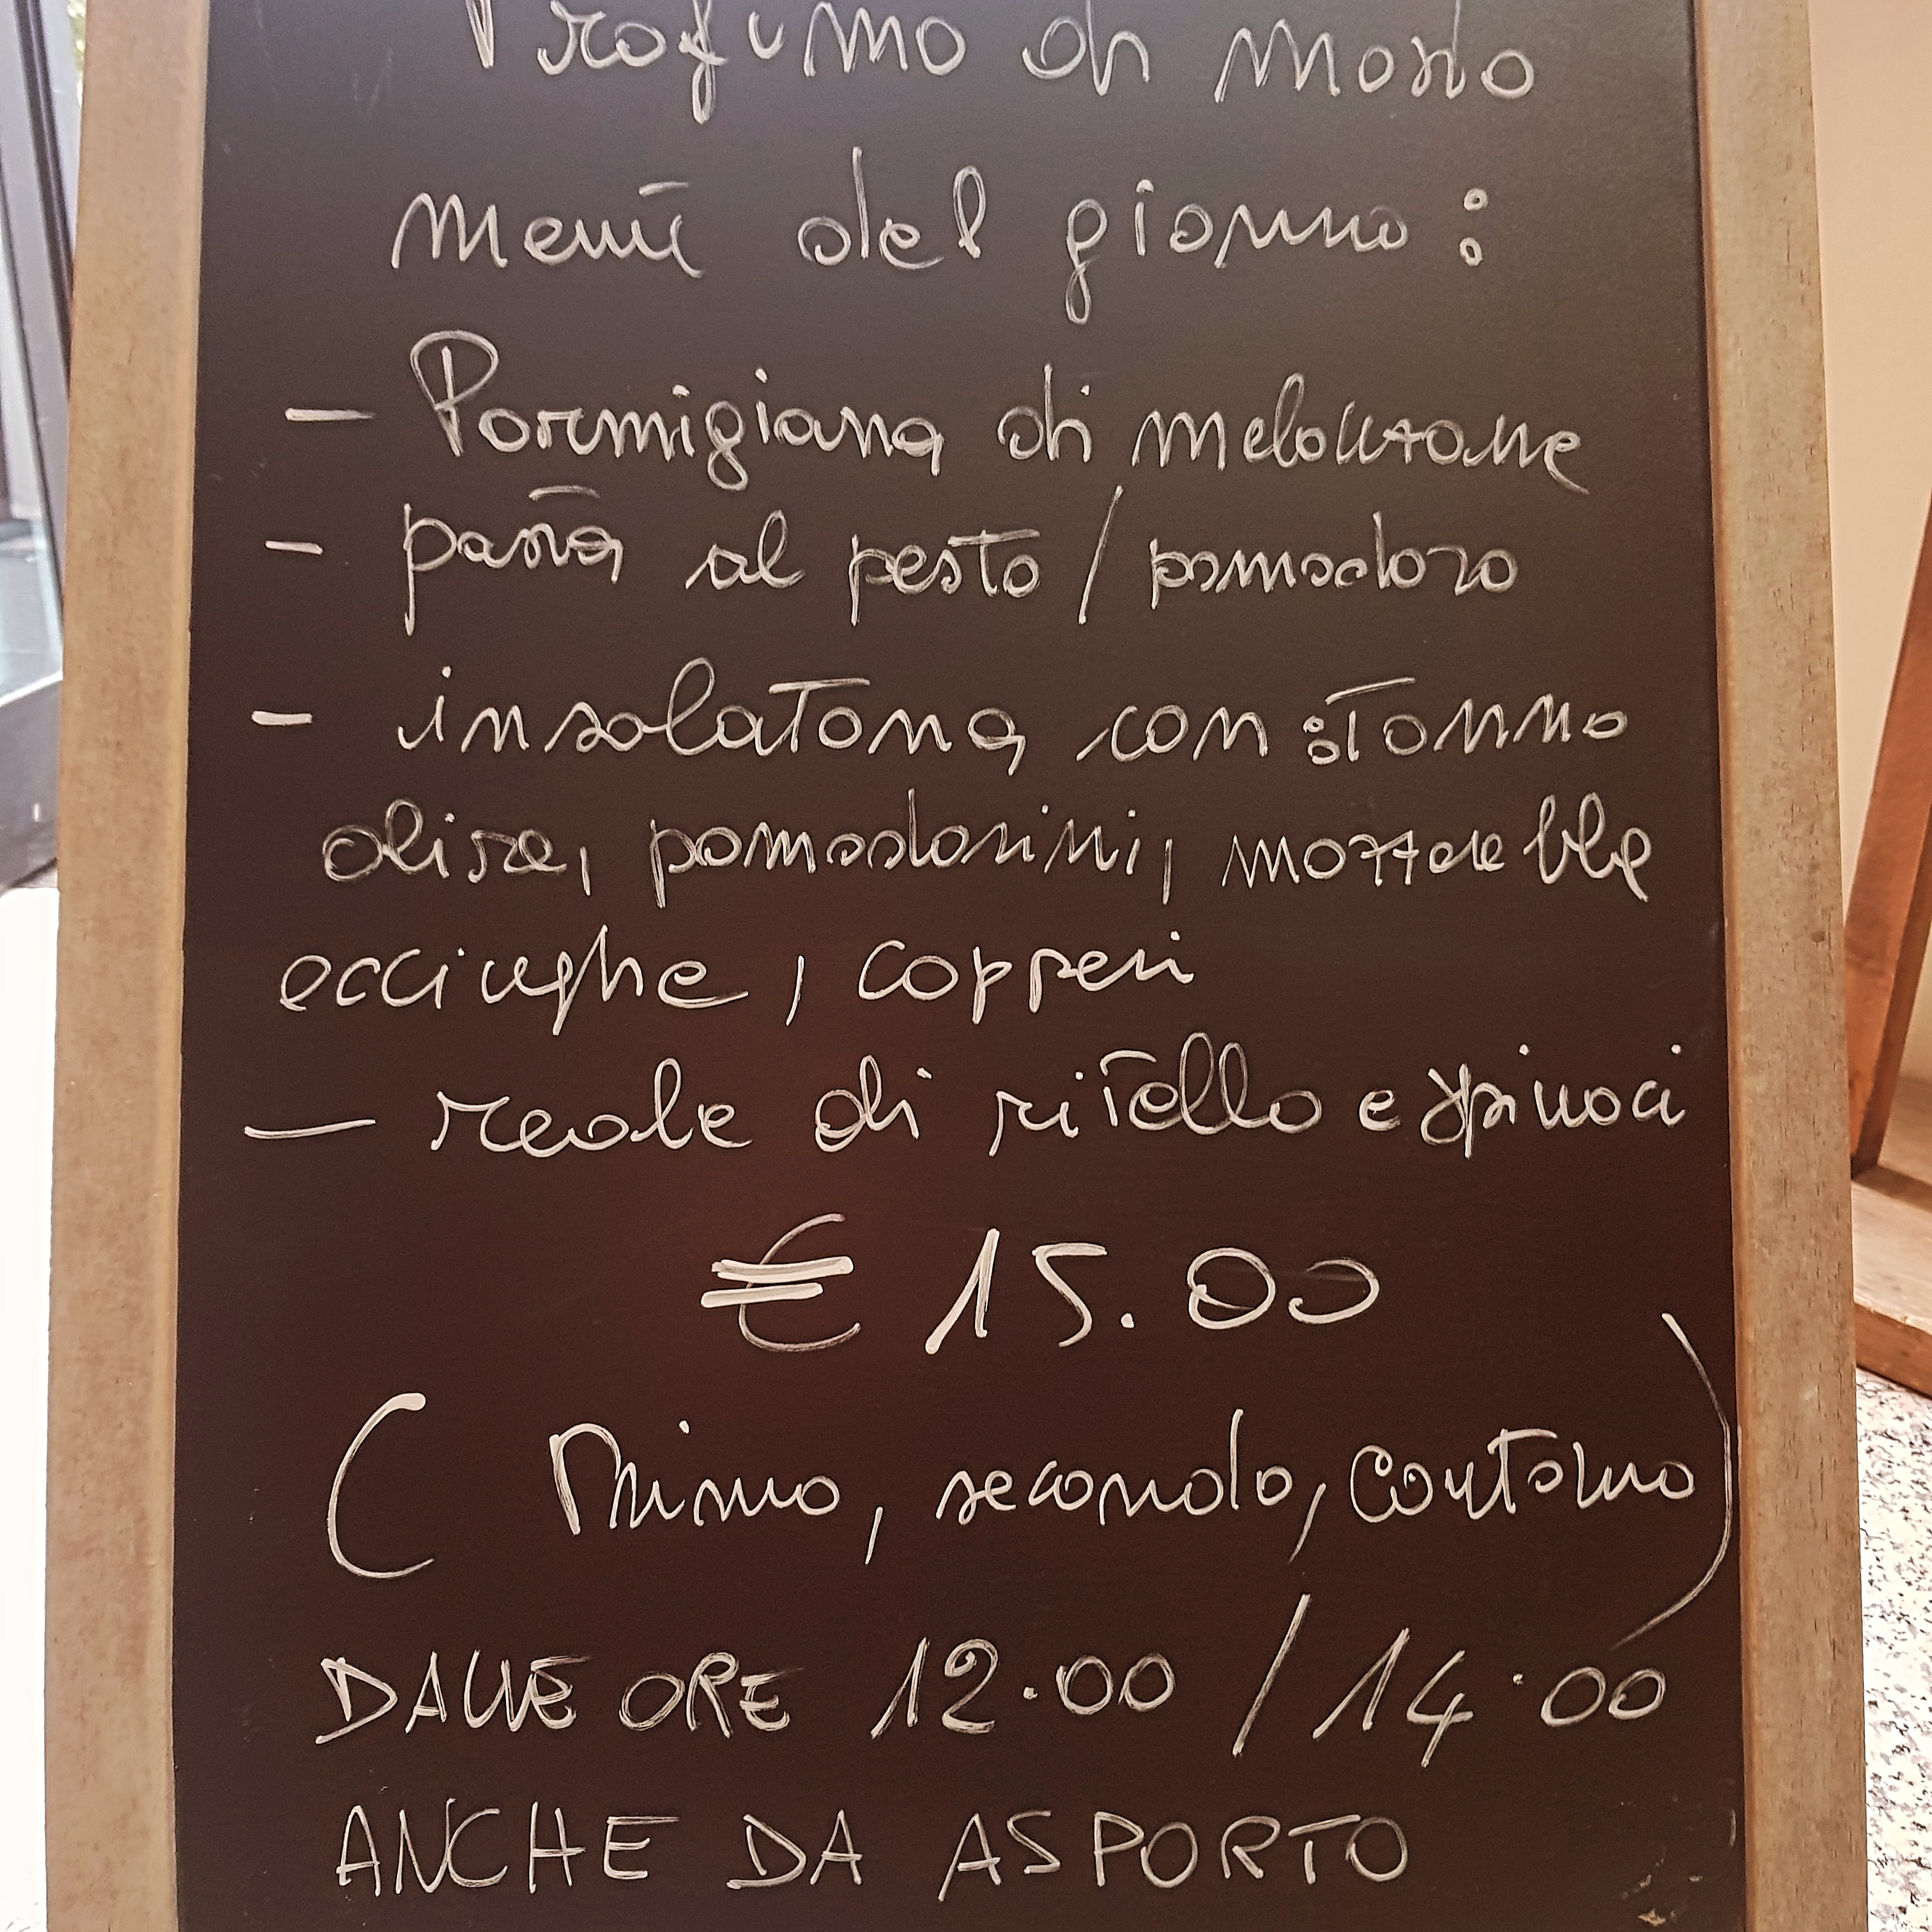 Profumo di mosto
menù del giorno:
- Parmigiana di melanzane
- pasta al pesto / pomodoro
- insalatona con: tonno
olive, pomodorini, mozzarelle
acciughe, capperi
- reale di vitello e spinaci
€ 15.00
( Primo, secondo, contorno)
DALLE ORE 12.00 / 14.00
ANCHE DA ASPORTO